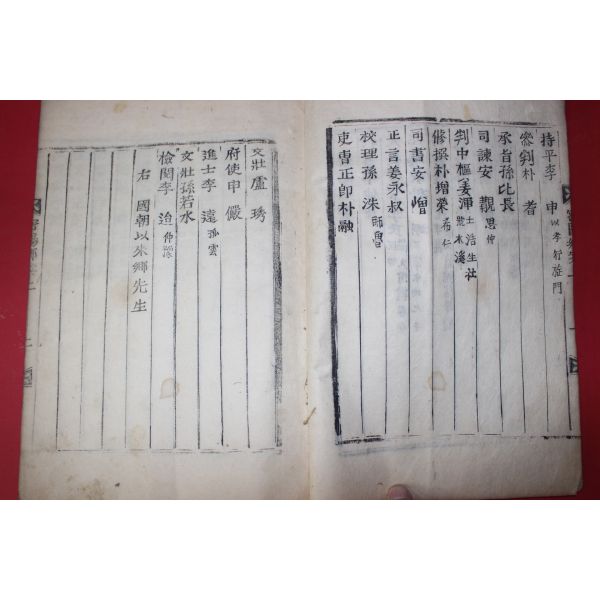 持平李 申 以孝行旌門
參判朴 者
承旨孫比長
司諫安 覯
判中樞姜渾 士浩 生社 木溪
修撰朴增榮 希仁
司書安 嶒
正言姜永叔
校理孫 洙 師魯
吏曹正郎朴融
文壯盧 琇
府使申 儼
進士李 遠
文壯孫若水
檢閱李 迨 仲豫
右 國朝以來鄉先生